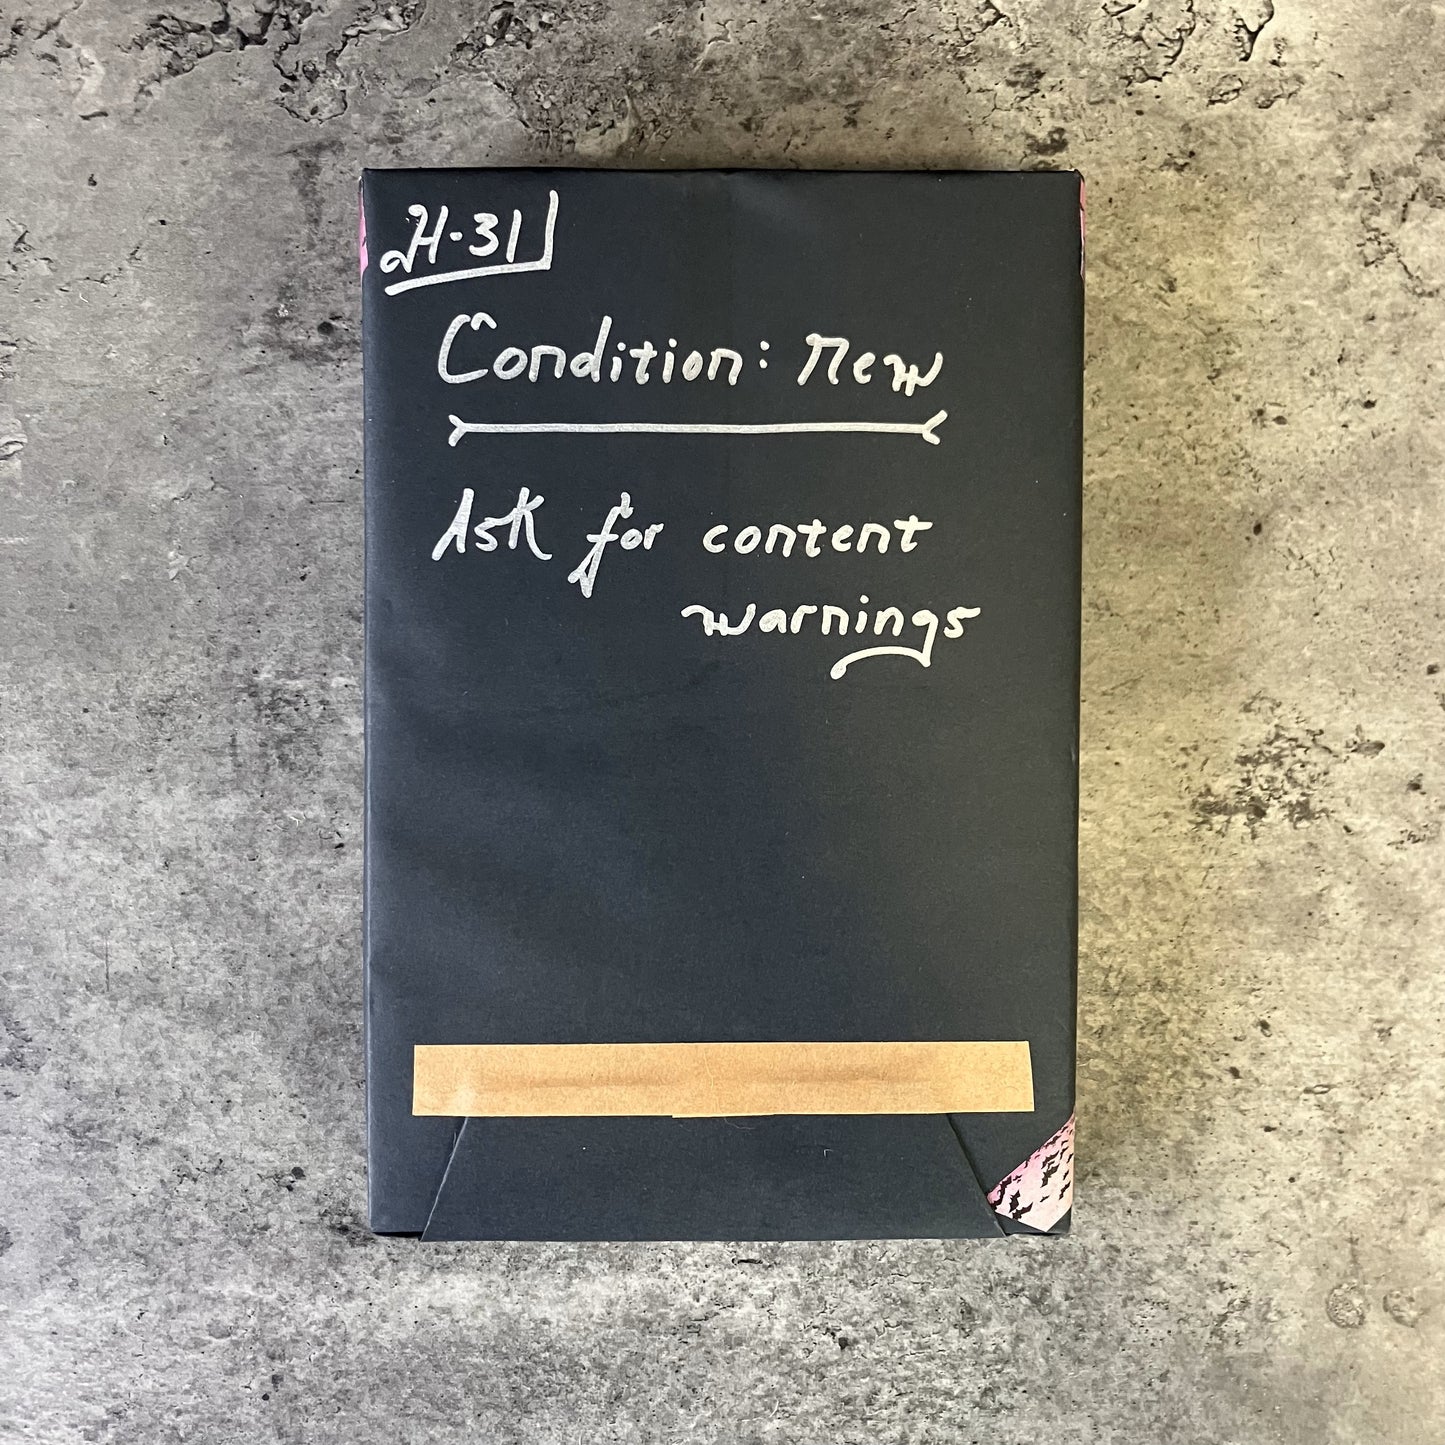 H-31
Condition: new
Ask for content
warnings